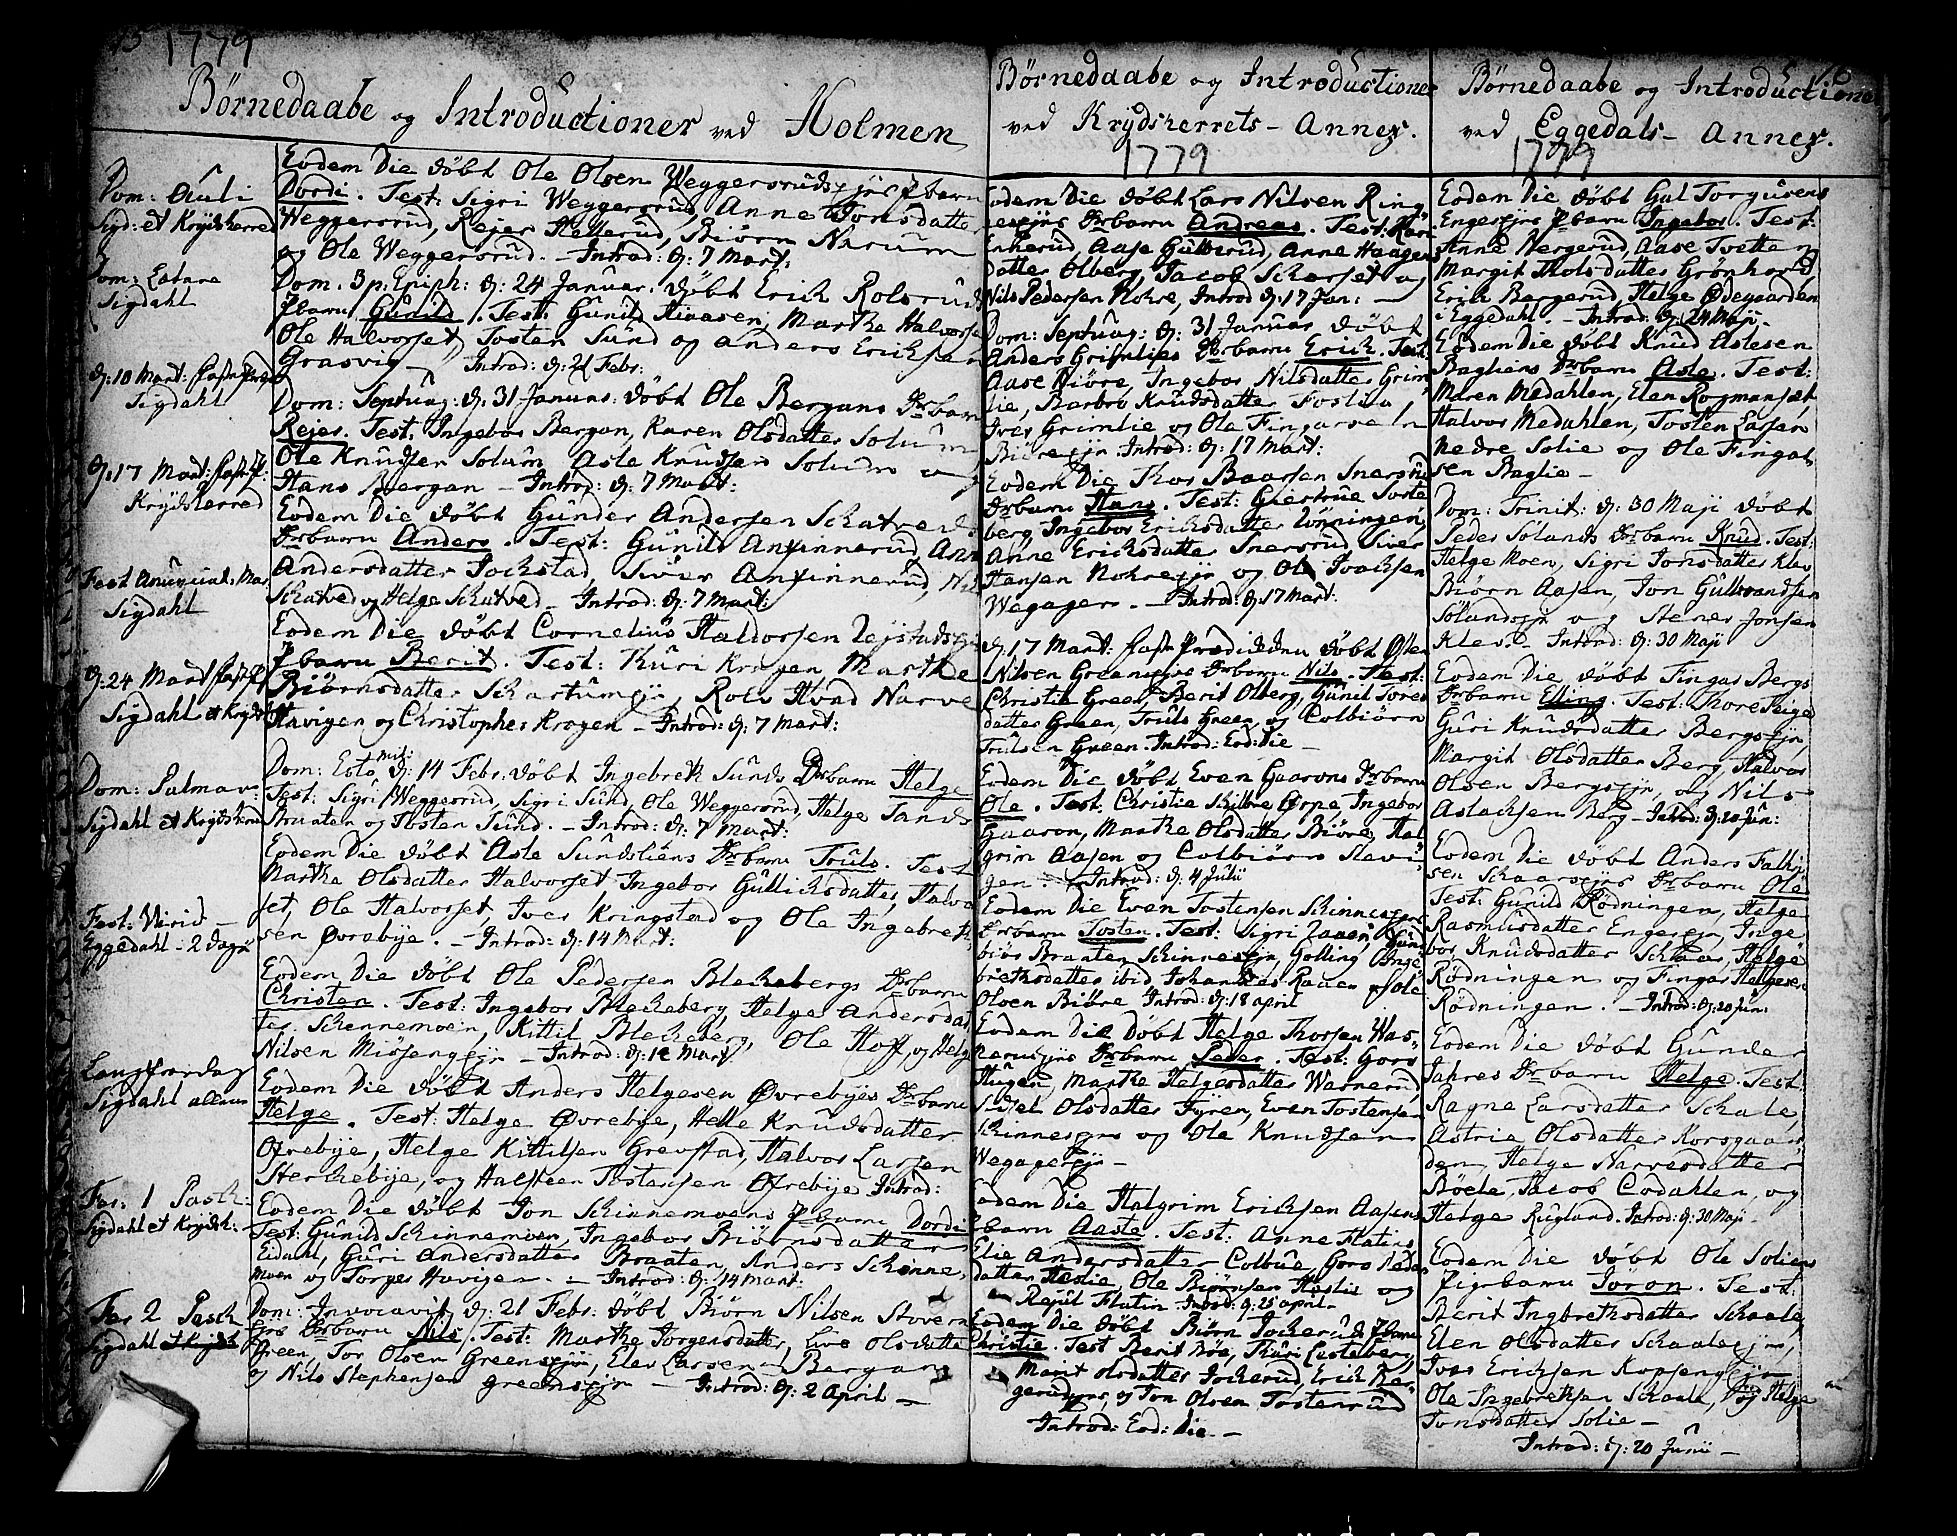 15 1779
Børnedaabe og Introductioner ved Holmen
Dom: Oculi
Sigd: et Krydsherred
Dom: Latare
Sigdahl
d: 10 Mart: fastepræd
Sigdahl
d: 17 Mart: fastepr:
Krydsherred
Fest Anunciat: Mar
Sigdahl
d: 24 Mart fastepr
Sigdahl et Krydsh
Dom: Palmar
Sigdahl et Krydsherr
Fest: Virid
Eggedahl - 2 dage
Langfredag
Sigdahl allene
Fer: 1 Pasch:
Sigdahl et Krydsh:
Fer 2 Pasch
Sigdahl et Krydsh
Eodem Die døbt Ole Olsen Weggersrudsejes Pbarn
Dordi. Test: Sigri Weggersrud, Anne Jonsdatter
Weggersrud, Rejer Hollerud, Biørn Narum
og Ole Weggersrud. - Introd: d: 7 Mart:
Dom. 3 p: Epiph: d: 24 Januar. døbt Erich Rolsruds
Pbarn Gunild. Test: Gunild Haasen, Marthe Halvorse
Ole Halvorset, Tosten Sund og Anders Erichsen
Grasvig - Introd: d: 21 Febr:
Dom: Septuag: d: 31 Januar. døbt Ole Bergans Drbarn
Rejer. Test: Ingebor Bergan, Karen Olsdatter Solum
Ole Knudsen Solum, Asle Knudsen Solum og
Hans Bergan - Introd: d: 7 Mart:
Eodem Die døbt Gunder Andersen Schatveds
Drbarn Anders. Test: Gunild Anfinnerud, Ann
Andersdatter Jockstad, Siver Anfinnerud, Nil
Schatved og Helge Schatved - Introd: d: 7 Mart:
Eodem Die døbt Cornelius Haldorsen Lejstadsej
Pbarn Berit. Test: Kuri Krogen Marthe
Biørnsdatter Schartumej, Rolv Hvad Narve
Havigen og Christopher Krogen - Introd: d: 7 Mart:
Dom: Estomih: d: 14 Febr: døbt Ingebrek Sunds Drbarn Helge
Test: Sigri Weggersrud, Sigri Sund, Ole Weggersrud, Helge Tands
Braaten og Tosten Sund. - Introd: d: 7 Mart:
Eodem Die døbt Asle Sundsliens Drbarn Truls. Test
Marthe Olsdatter Halvorset, Ingebor Gullichsdatter, Halvo
set, Ole Halvorset, Iver Kringstad og Ole Ingebret
sen Øvrebye. - Introd: d: 14 Mart:
Eodem Die døbt Ole Pedersen Blechebergs Drbarn
Christen. Test: Ingebor Blecheberg, Helge Andersdat
ter Schennemoen, Kittil Blecheberg, Ole Hoff, og Helge
Nilsen Miøsengejn - Introd: d: 14 Mart
Eodem Die døbt Anders Helgesen Øvrebyes Drbarn
Helge. Test: Helge Øvrebye, Helle Knudsdatter
Øfrebye, Helge Kittilsen Grevstad, Halvor Larsen
Sterchebye, og Halsteen Tostensen Øfrebye Introd:
Eodem Die døbt Jon Schinnemoens Pbarn Dordi
Test: Gunild Schinnemoen, Ingebor Biørnsdatter
Eidahl, Guri Andersdatter Braaten, Anders Schinne
moen og Torger Havigen. - Introd: d: 14 Mart:
Dom: Invocavit d: 21 Febr: døbt Biørn Nilsen Stovern
ejes Drbarn Nils. Test: Marthe Jorgensdatter, Live Olsdatte
Green, Tor Olsen Greensejn, Elev Larsen Bergan
og Nils Stephensen greensejn - Introd: d: 2 April -
Børnedaabe og Introductione
ved Krydsherrets - Annex.
1779
Eodem Die døbt Lars Nilsen Ring
esejes Drbarn Andreas. Test: Kari
Enherud, Aase Gulbrud, Anne Haagens
datter Olberg, Jacob Scharset og
Nils Pedersen Nohre, Introd d: 17 Jan: -
Dom: Septuag: d: 31 Januar døbt
Anders Grimlies Drbarn Erich. Test
Aase Biøre, Ingebor Nilsdatter Grim
lie, Barbro Knudsdatter Foslien,
Iver Grimlie og Ole Fingarsen
Biøresejn. Introd: d: 17 Mart:
Eodem Die Thor Baarsen Snersrud
Drbarn Hans. Test: Giertrue Soste
berg, Ingebor Ericksdatter Lønningen,
Anne Ericksdatter Snersrud Siver
Hansen Nohresejn og Ole Joachsen
Wegager. - Introd: d: 17 Mart:
d: 17 Mart: faste Prædicken døbt Osten
Nilsen Greensejes Drbarn Nils. Test:
Christie Green, Berit Olberg, Gunil Tores
datter Green, Truls Green, og Colbiørn
Trulsen Green. Introd: Eod: Die -
Eodem Die døbt Even Gaarons Drbarn
Ole. Test: Christie Schibre Ørpe Ingebor
Gaaron, Marthe Olsdatter Biøre, Hal
grim Aasen og Colbiørn Slevi
gen. - Introd: d: 4 Julii
Eodem Die Even Tostensen Schinnesejes
Drbarn Tosten. Test: Sigri Laaen, Gun
biør Braaten Schinnesejn, Golling Inge
bretsdatter ibid Johannes Rauen og Ole
Olsen Biøre Introd: d: 18 april
Eodem Die Døbt Helge Thorsen Was
herudejes Drbarn Peder. Test: Goro
Haugen, Marthe Helgesdatter Warnerud,
Sidsel Olsdatter Fyren, Even Tostensen
Schinnesejes og Ole Knudsen
Wegagersejn -
Eodem Die Halgrim Ericksen Aasens
Pbarn Aaste. Test: Anne Flatin
Elie Andersdatter Colbue, Goro Peders
datter Haslie, Ole Biørnsen Haslie og
Rejul Flatin Introd: d: 25 april -
Eodem Die døbt Biørn Jocherud Pbarn
Christie. Test Berit Bøe, Thuri Casteberg,
Marit Olsdatter Jocherud, Erich Ber
gerudejes, og Jon Olsen Tostenrud
Introd: Eod: Die -
16
Børnedaabe og Introductione
ved Eggedals - Annex.
1779
Eodem Die døbt Gul Torgusens
Engesejes Pbarn Ingebor. Test:
Anne Bergerud, Aase Tvetten
Margit Tholsdatter Grønhord
Erick Bergerud, Helge Ødegaarden
i Eggedahl - Introd: d: 24 Maji -
Eodem Die døbt Knud Aslesen
Bagliens Drbarn Asle. Test:
Maren Medahlen, Elen Rogmanset
Halvor Medahlen, Tosten Larsen
Nedre Solie og Ole Fingar
sen Baglie -
Dom: Trinit: d: 30 Maji døbt
Peder Solands Drbarn Knud. Test:
Helge Moen, Sigri Jonsdatter Klev
Biørn Aasen, Jon Gulbrandsen
Solandsejn og Stener Jonsen
Kleved. Introd: d: 30 Maji
Eodem Die døbt Fingar Bergs
Drbarn Elling. Test: Thore Teige
Guri Knudsdatter Bergsejn,
Margit Olsdatter Berg, Halvor
Olsen Bergsejn, og Nils
Aslachsen Berg - Introd: d: 20 Jun:
Eodem Die døbt Anders Falki
sen Schaarsejes Drbarn Ole
Test: Gunild Rødningen, Helge
Rasmusdatter Engesejn, Inge
bor Knudsdatter Schaar, Helge
Rødningen og Fingar Helgesen
Rødningen. - Introd: d: 20 Jun:
Eodem Die døbt Gunder
Jahres Drbarn Helge. Test:
Ragne Larsdatter Schale,
Astrie Olsdatter Korsgaar
den, Helge Narvesdatter
Bøele, Jacob Codahlen, og
Helge Rugland. Introd: d: 30 Maji -
Eodem Die døbt Ole Soliens
Pigebarn Toron. Test:
Berit Ingbretsdatter Schaale,
Elen Olsdatter Schaalesejn,
Iver Ericksen Kopseng
Ole Ingebretsen Schaale, og Helge
Jonsdatter Solie -
Introd: d: 20 Junii -